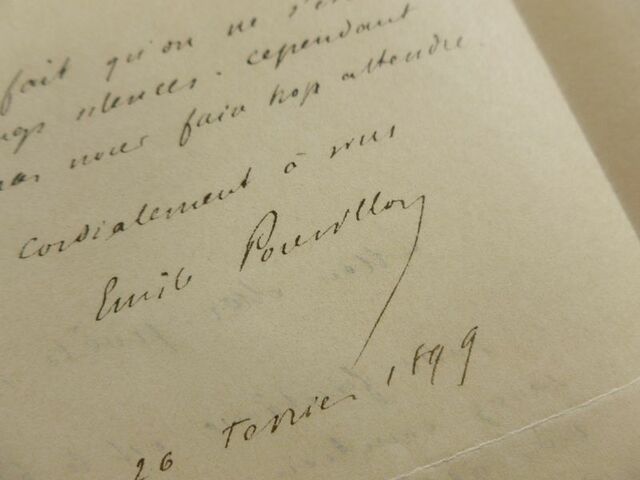 fait qu'on ne s'en
silences. cependant
pas nous faire trop attendre.
cordialement à vous
Emile Pouvillon
26 Février 1899